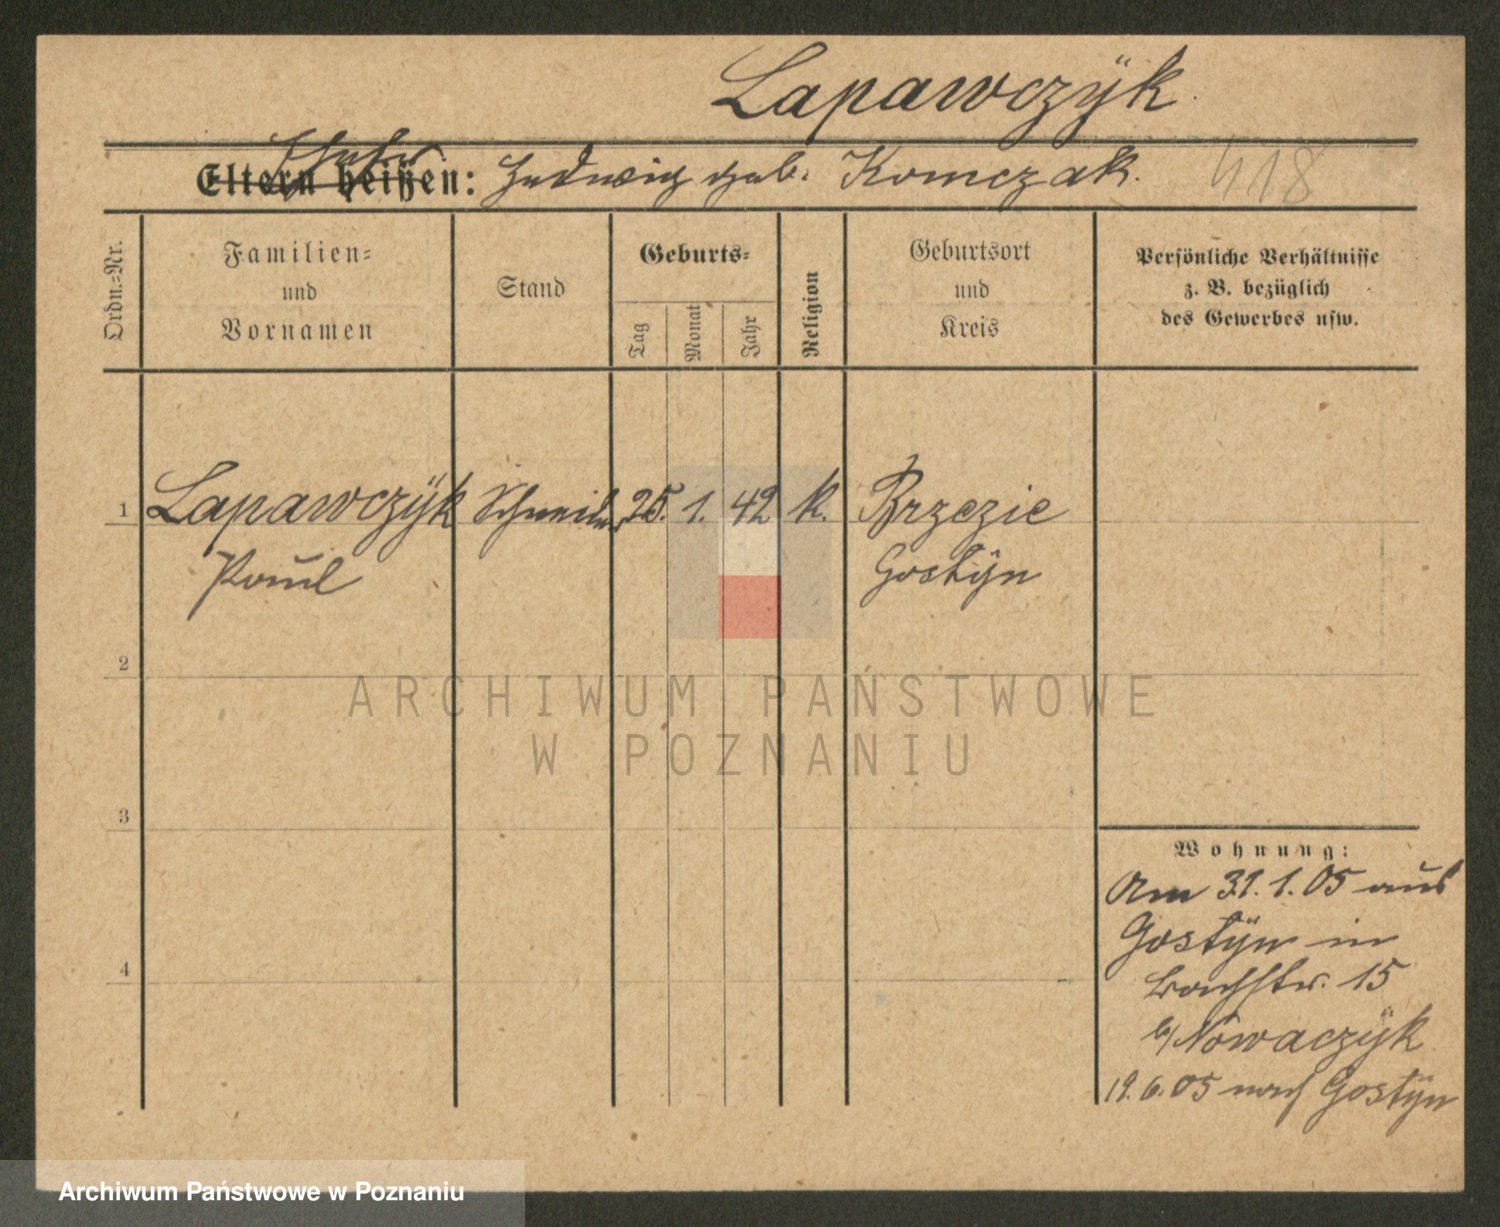 Lapawczÿk
Eltern heißen: Hedwig geb. Komczak.
418
Ordn.-Nr.
Familien-
und
Vornamen
Stand
Geburts-
Tag
Monat
Jahr
Religion
Geburtsort
und
Kreis
Persönliche Verhältnisse
z. B. bezüglich
des Gewerbes usw.
1 Lapawczÿk Schneider 25. 1. 42 k. Brzezie
Paul Gostÿn
2
ARCHIWUM PAŃSTWOWE
W POZNANIU
3
Wohnung:
Am 31.1.05 aus
Gostÿn in
4
Bachstr. 15
b/ Nowaczÿk
19.6.05 nach Gostÿn
Archiwum Państwowe w Poznaniu